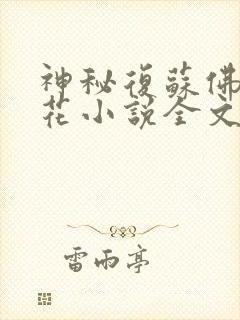 神秘復蘇佛
花小說全文
雷雨亭